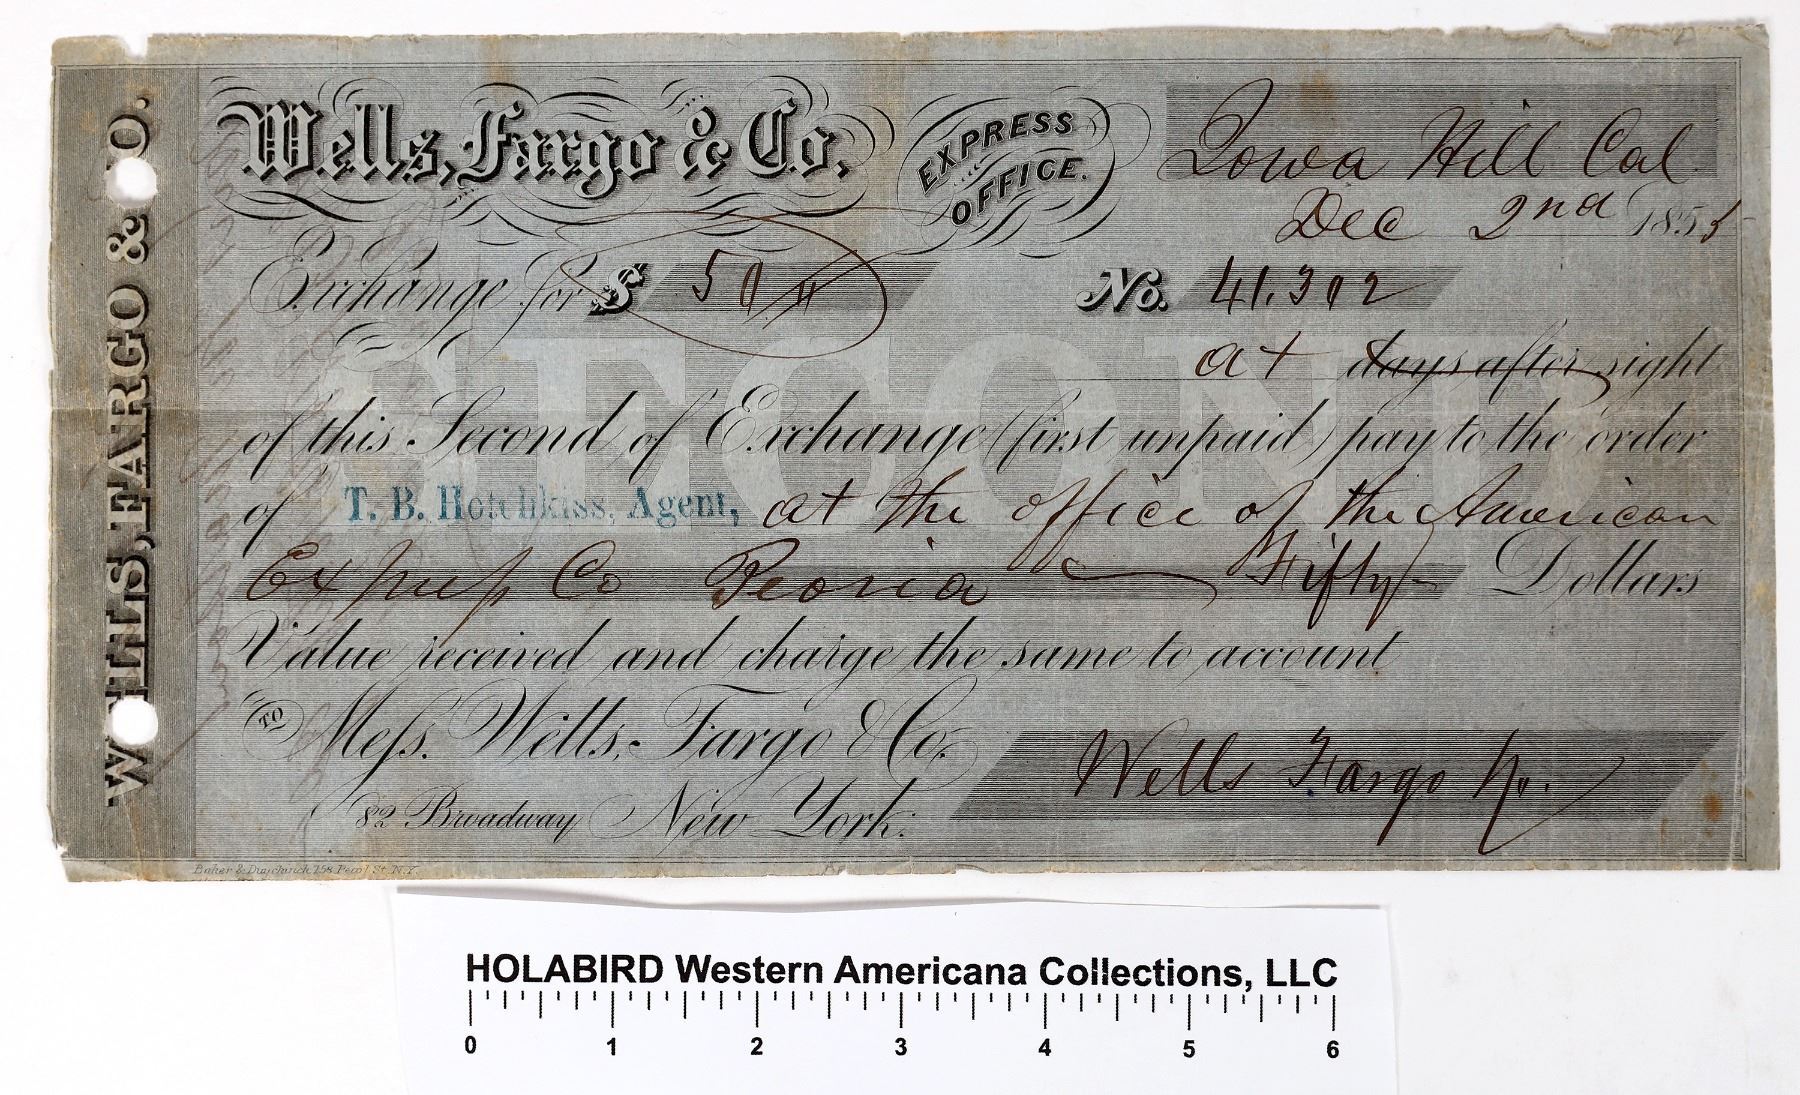 WELLS, FARGO & CO.
Wells, Fargo & Co. EXPRESS OFFICE. Iowa Hill Cal
Dec 2nd 1855
Exchange for $ 50 No. 41.302
at days after sight
of this Second of Exchange (first unpaid) pay to the order
of T. B. Hotchkiss, Agent, at the office of the American
Express Co Peoria Fifty Dollars
Value received and charge the same to account
TO Mess. Wells, Fargo & Co. Wells Fargo
82 Broadway New York.
SECOND
Baker & 158 Pearl St. N.Y.
HOLABIRD Western Americana Collections, LLC
0 1 2 3 4 5 6